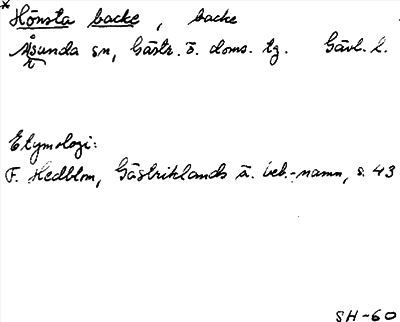 * Hönsta backe, backe
Årsunda sn, Gästr. ö. doms. tg. Gävl. l.
Etymologi:
F. Hedblom, Gästriklands ä. beb.-namn, s. 43
SH-60